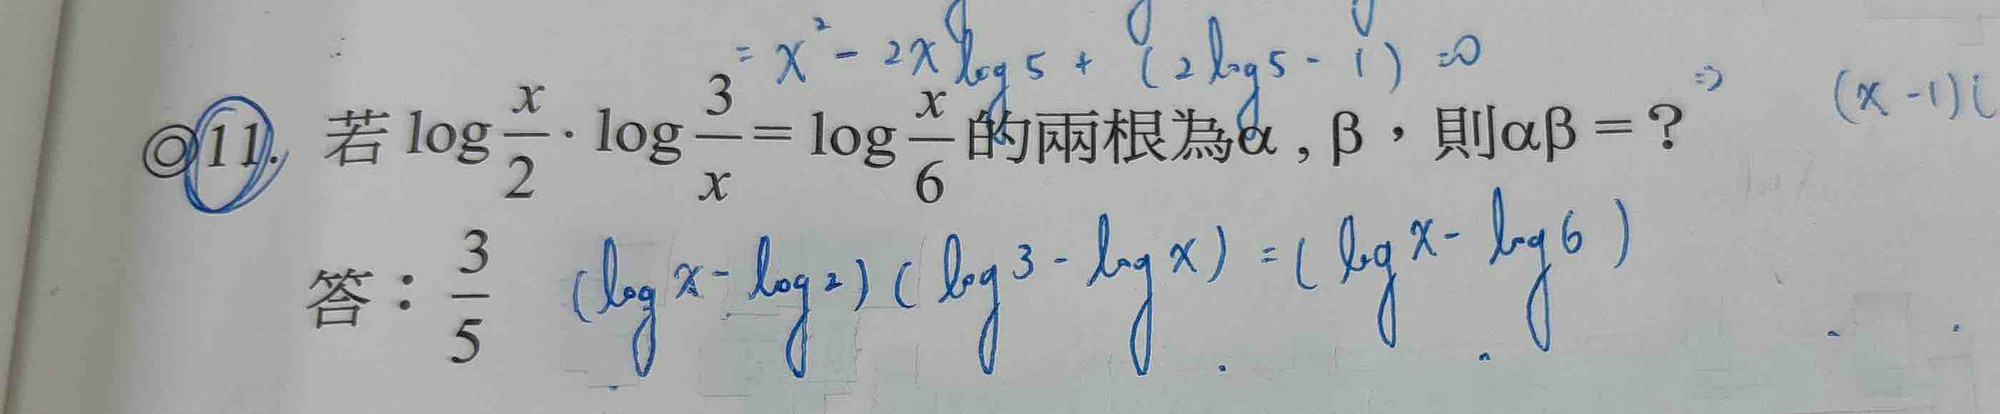 = x² - 2x log 5 + (2 log 5 - 1) = 0
⇒ (x - 1)(
◎11. 若 log x/2 · log 3/x = log x/6 的兩根為α , β，則αβ = ?
答：3/5 (log x - log 2) ( log 3 - log x ) = ( log x - log 6 )